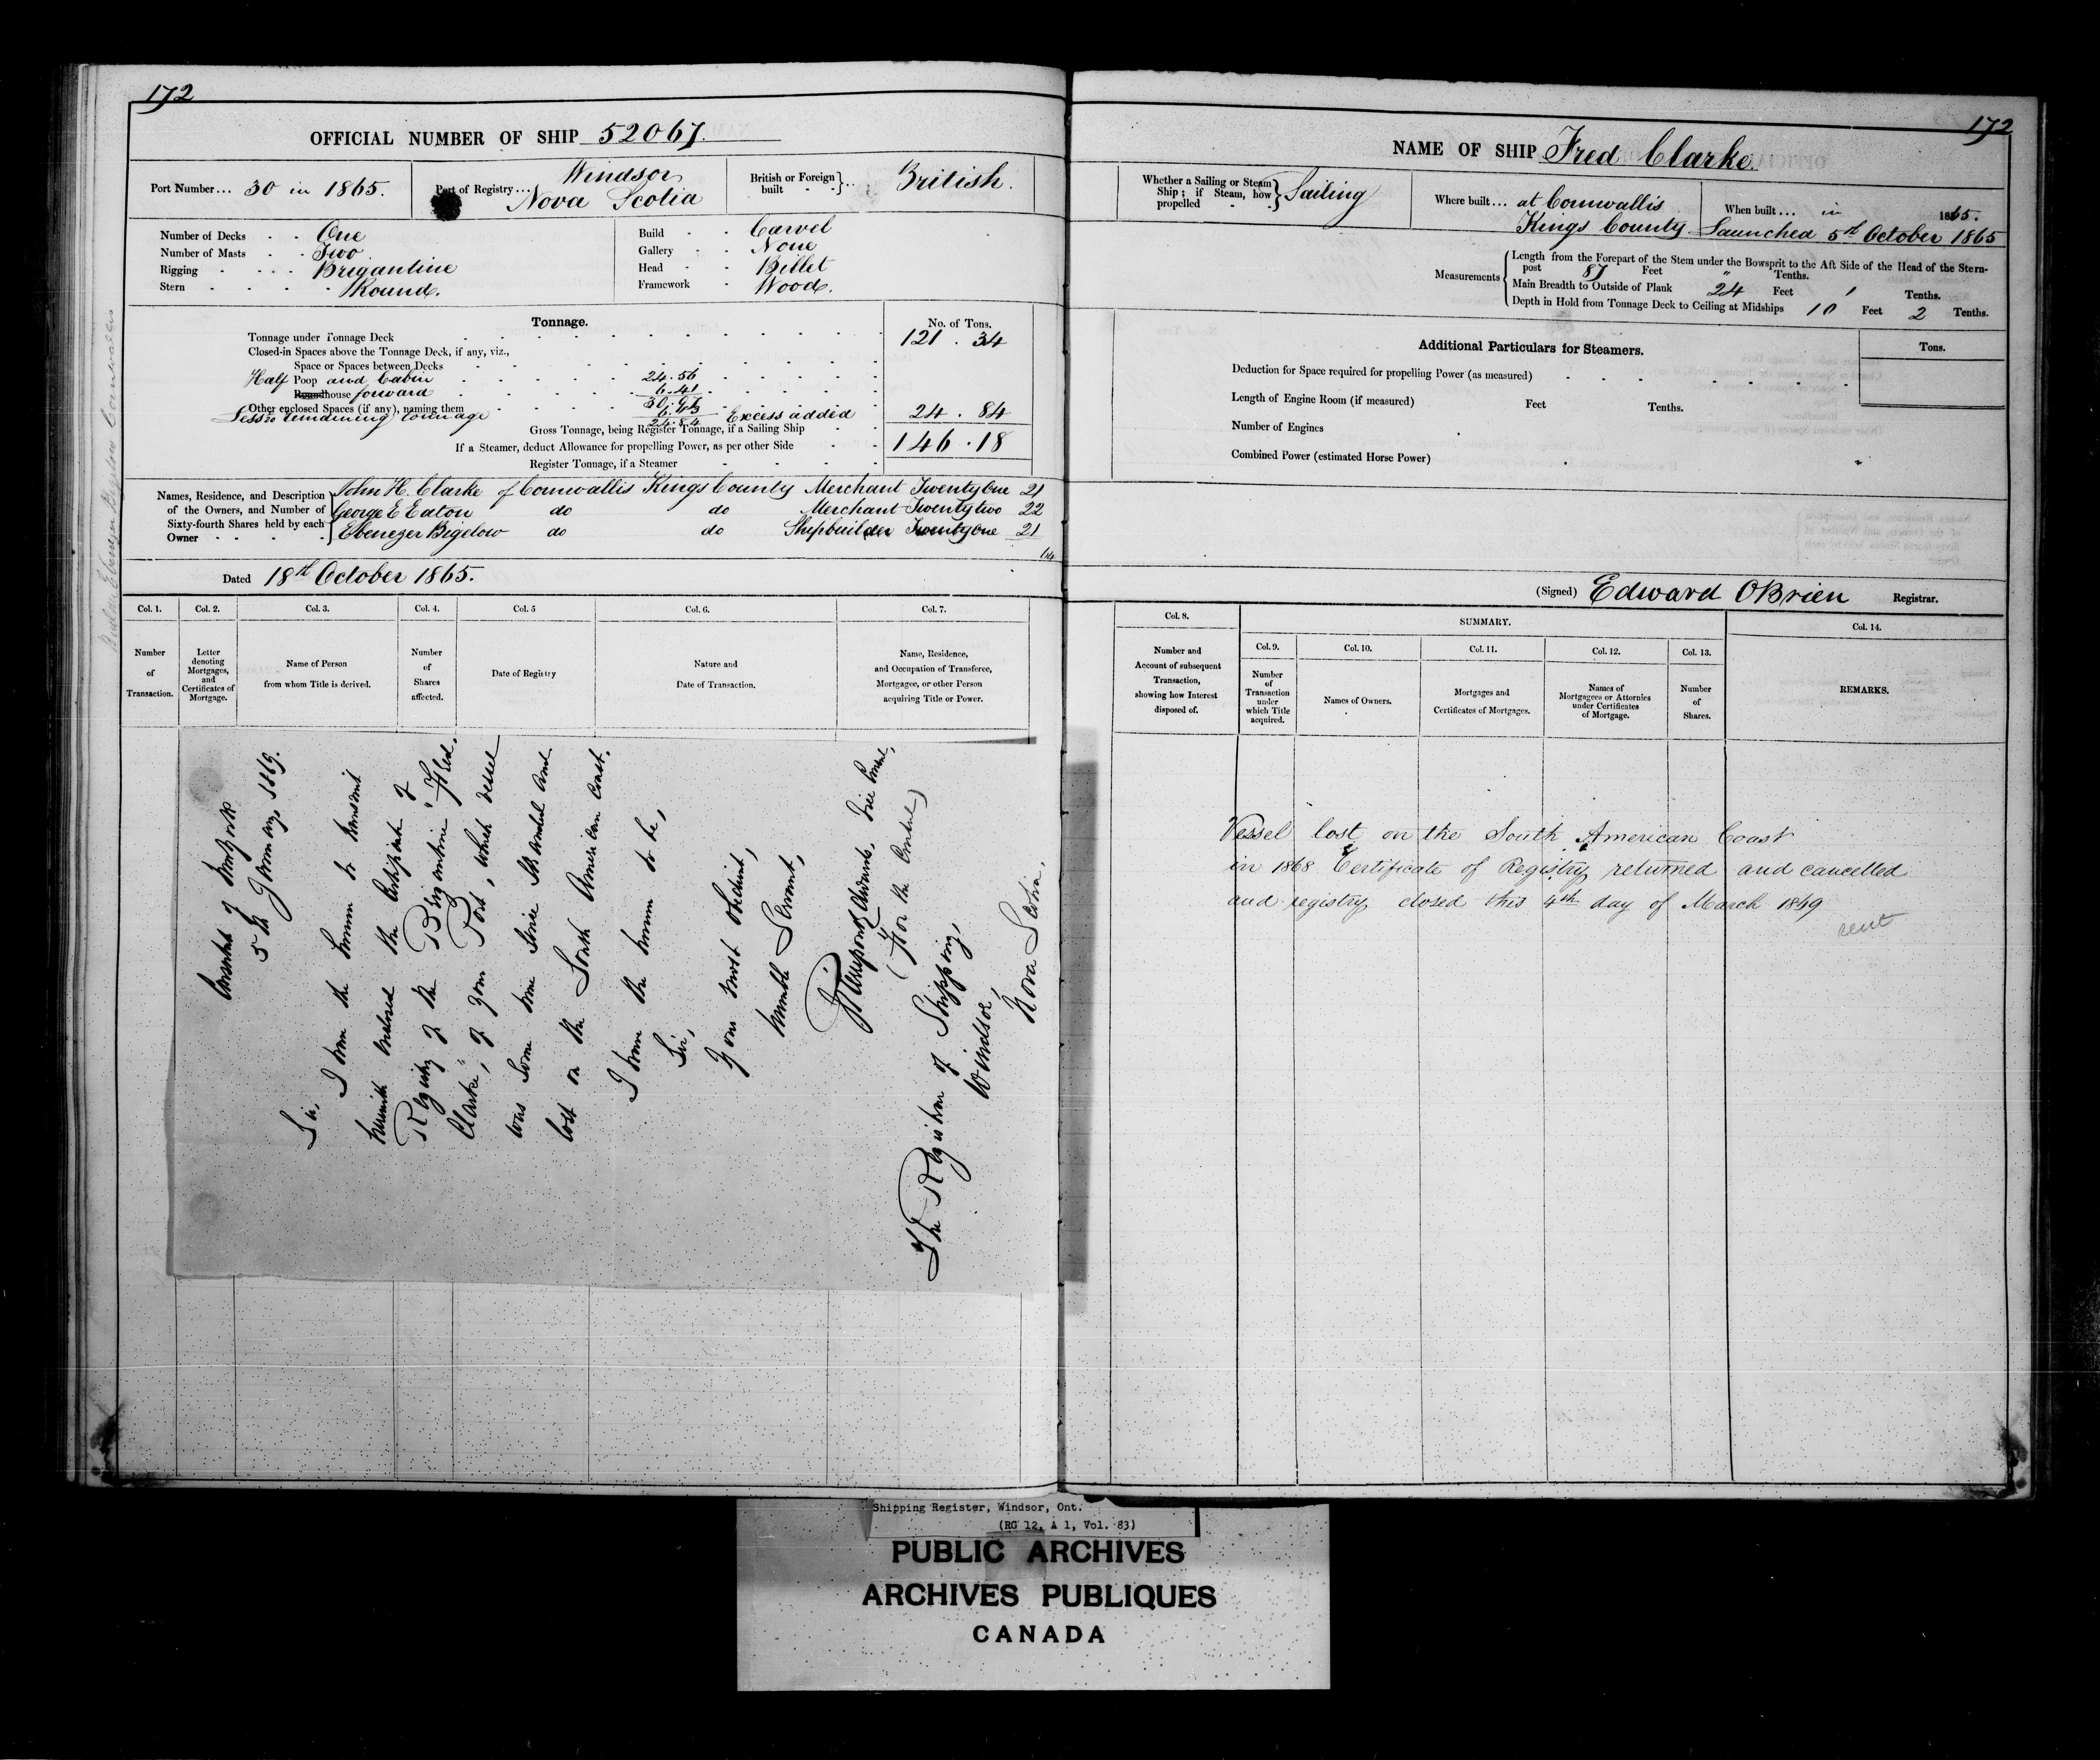 172
OFFICIAL NUMBER OF SHIP 52067.
Port Number... 30 in 1865.
Port of Registry... Windsor
Nova Scotia
British or Foreign built British.
Number of Decks One
Number of Masts Two
Rigging Brigantine
Stern Round.
Build Carvel
Gallery None
Head Billet
Framework Wood.
Tonnage.
No. of Tons.
Tonnage under Tonnage Deck 121.34
Closed-in Spaces above the Tonnage Deck, if any, viz.,
Space or Spaces between Decks
Half Poop and Cabin 24.56
Roundhouse forward 6.41
Other enclosed Spaces (if any), naming them 30.97
Excess added 24.84
Gross Tonnage, being Register Tonnage, if a Sailing Ship 146.18
If a Steamer, deduct Allowance for propelling Power, as per other Side
Register Tonnage, if a Steamer
Names, Residence, and Description of the Owners, and Number of Sixty-fourth Shares held by each Owner
John H. Clarke of Cornwallis Kings County Merchant Twenty One 21
George E Eaton do do Merchant Twenty two 22
Ebenezer Bigelow do do Shipbuilder Twenty One 21
64
Dated 18th October 1865.
Col. 1. Number of Transaction.
Col. 2. Letter denoting Mortgages, and Certificates of Mortgage.
Col. 3. Name of Person from whom Title is derived.
Col. 4. Number of Shares affected.
Col. 5 Date of Registry
Col. 6. Nature and Date of Transaction.
Col. 7. Name, Residence, and Occupation of Transferee, Mortgagee, or other Person acquiring Title or Power.
Consulate of New York
5th January 1869.
Sir,
I have the honour to transmit
herewith enclosed the Certificate of
Registry of the Brigantine "Fred.
Clarke", of your Port, which vessel
was some time since stranded and
lost on the South American Coast.
I have the honour to be,
Sir,
Your most obedient,
humble Servant,
Pierrepont Edwards, Vice Consul,
(For the Consul)
The Registrar of Shipping,
Windsor,
Nova Scotia.
172
NAME OF SHIP Fred Clarke.
Whether a Sailing or Steam Ship; if Steam, how propelled Sailing
Where built... at Cornwallis
Kings County
When built... in 1865.
Launched 5th October 1865
Measurements
Length from the Forepart of the Stem under the Bowsprit to the Aft Side of the Head of the Stern-
post 87 Feet " Tenths.
Main Breadth to Outside of Plank 24 Feet 1 Tenths.
Depth in Hold from Tonnage Deck to Ceiling at Midships 10 Feet 2 Tenths.
Additional Particulars for Steamers.
Tons.
Deduction for Space required for propelling Power (as measured)
Length of Engine Room (if measured) Feet Tenths.
Number of Engines
Combined Power (estimated Horse Power)
(Signed) Edward OBrien Registrar.
Col. 8. Number and Account of subsequent Transaction, showing how Interest disposed of.
SUMMARY.
Col. 9. Number of Transaction under which Title acquired.
Col. 10. Names of Owners.
Col. 11. Mortgages and Certificates of Mortgages.
Col. 12. Names of Mortgagees or Attornies under Certificates of Mortgage.
Col. 13. Number of Shares.
Col. 14. REMARKS.
Vessel lost on the South American Coast
in 1868 Certificate of Registry returned and cancelled
and registry closed this 4th day of March 1869
sent
Shipping Register, Windsor, Ont.
(RG 12, A 1, Vol. 83)
PUBLIC ARCHIVES
ARCHIVES PUBLIQUES
CANADA